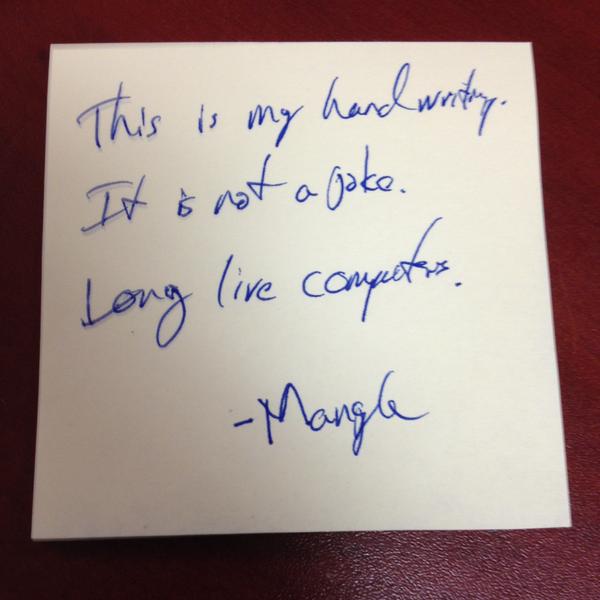 This is my handwriting.
It is not a joke.
Long live computers.
-Mangle